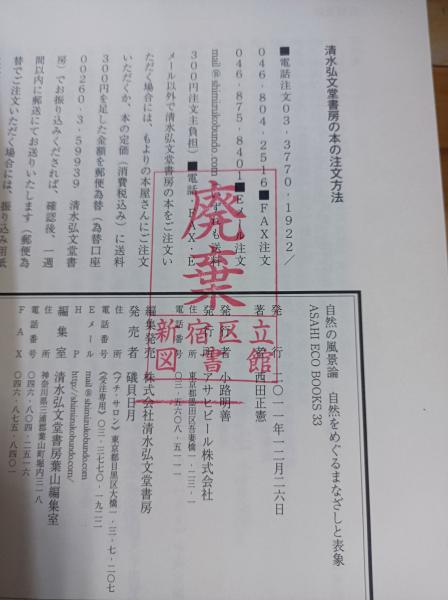 清水弘文堂書房の本の注文方法
■電話注文03-3770-1922/
046-804-2516■FAX注文
046-875-8401■Eメール注文
mail@shimizukobundo.com(いずれも送料
300円注文主負担)■電話・FAX・E
メール以外で清水弘文堂書房の本をご注文い
ただく場合には、もよりの本屋さんにご注文
いただくか、本の定価(消費税込み)に送料
300円を足した金額を郵便為替(為替口座
00260-3-59939 清水弘文堂書
房)でお振り込みくだされば、確認後、一週
間以内に郵送にてお送りいたします(郵便為
替でご注文いただく場合には、振り込み用紙
廃棄
新宿区立
図書館
自然の風景論 自然をめぐるまなざしと表象
ASAHI ECO BOOKS 33
発行 二〇一一年一二月二六日
著者 西田正憲
発行者 小路明善
発行所 アサヒビール株式会社
住所 東京都墨田区吾妻橋一-二三-一
電話番号 〇三-五六〇八-五一一一
編集発売 株式会社清水弘文堂書房
発売者 礒貝日月
住所 《プチ・サロン》東京都目黒区大橋一-三-七-二〇七
電話番号 《受注専用》〇三-三七七〇-一九二二
Eメール mail@shimizukobundo.com
HP http://shimizukobundo.com/
編集室 清水弘文堂書房葉山編集室
住所 神奈川県三浦郡葉山町堀内三一八
電話番号 〇四六-八〇四-二五一六
FAX 〇四六-八七五-八四〇一